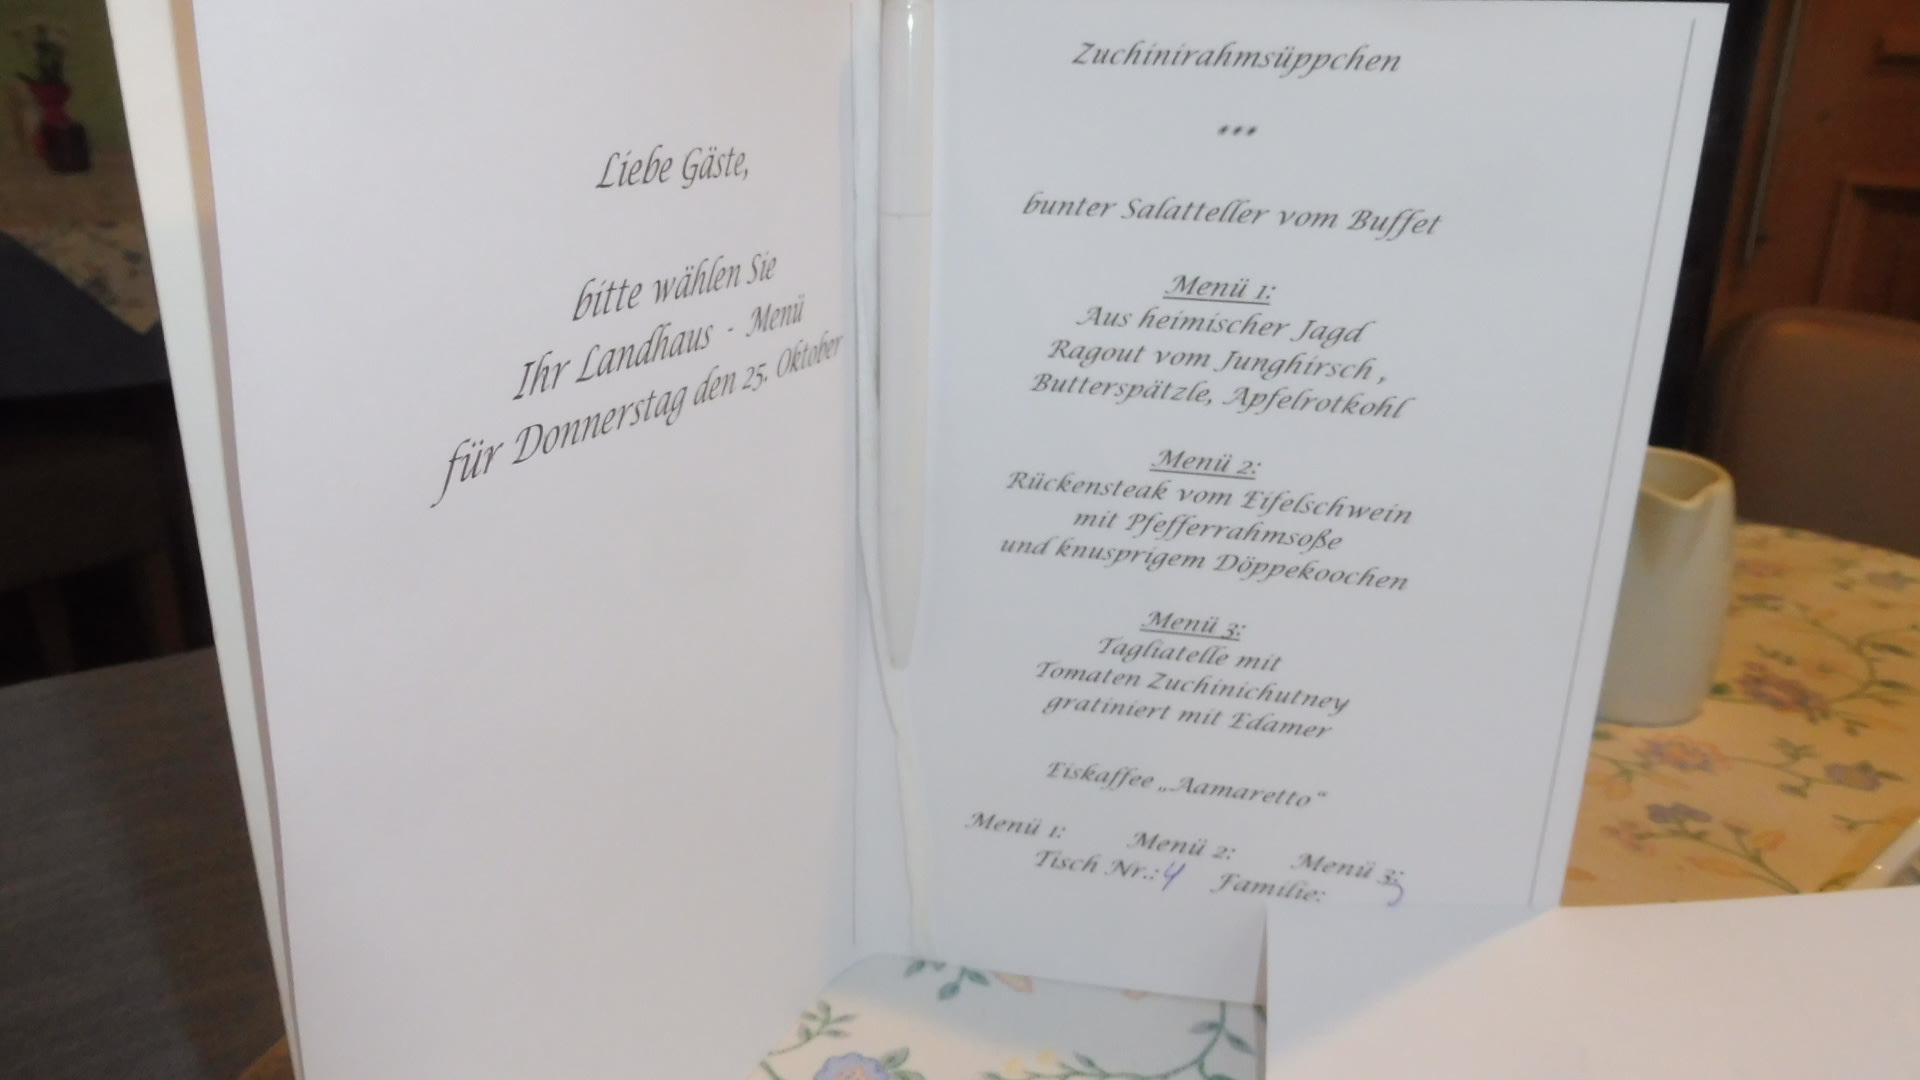 Liebe Gäste,
bitte wählen Sie
Ihr Landhaus - Menü
für Donnerstag den 25. Oktober
Zuchinirahmsüppchen
***
bunter Salatteller vom Buffet
Menü 1:
Aus heimischer Jagd
Ragout vom Junghirsch,
Butterspätzle, Apfelrotkohl
Menü 2:
Rückensteak vom Eifelschwein
mit Pfefferrahmsoße
und knusprigem Döppekoochen
Menü 3:
Tagliatelle mit
Tomaten Zuchinichutney
gratiniert mit Edamer
Eiskaffee „Aamaretto“
Menü 1: Menü 2: Menü 3:
Tisch Nr.: 4 Familie: